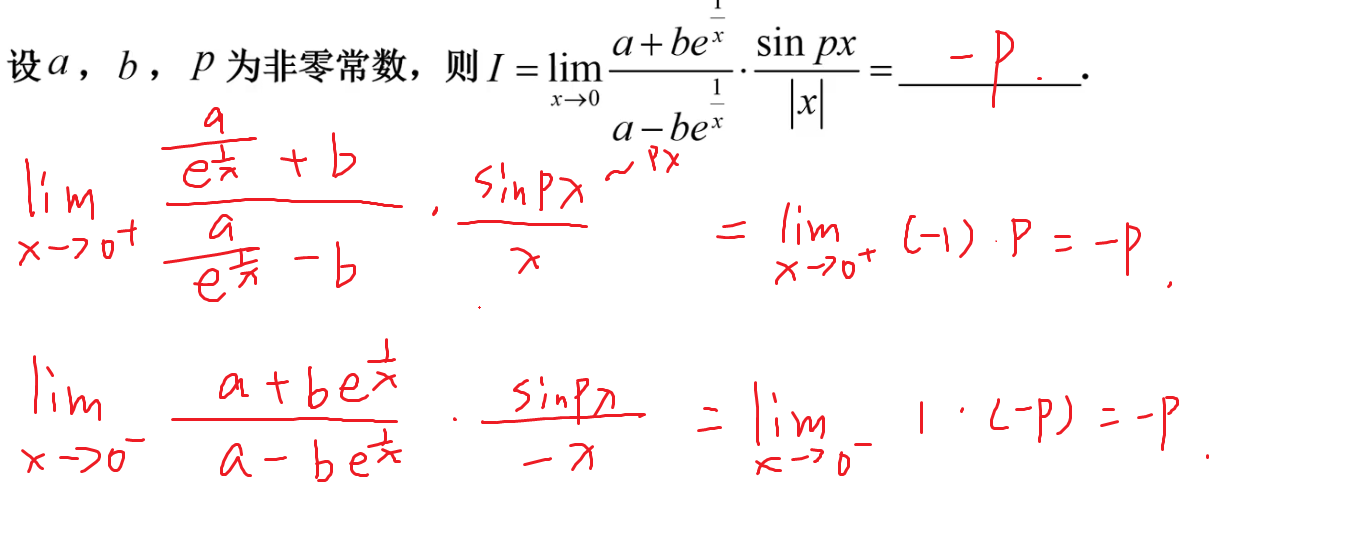 设 a，b，p 为非零常数，则 I = lim_{x→0} \frac{a+be^{\frac{1}{x}}}{a-be^{\frac{1}{x}}} · \frac{sin px}{|x|} = -p .
lim_{x→0^+} \frac{\frac{a}{e^{\frac{1}{x}}}+b}{\frac{a}{e^{\frac{1}{x}}}-b} · \frac{sinpx}{x} ~px = lim_{x→0^+} (-1)·p = -p.
lim_{x→0^-} \frac{a+be^{\frac{1}{x}}}{a-be^{\frac{1}{x}}} · \frac{sinpx}{-x} = lim_{x→0^-} 1·(-p) = -p.